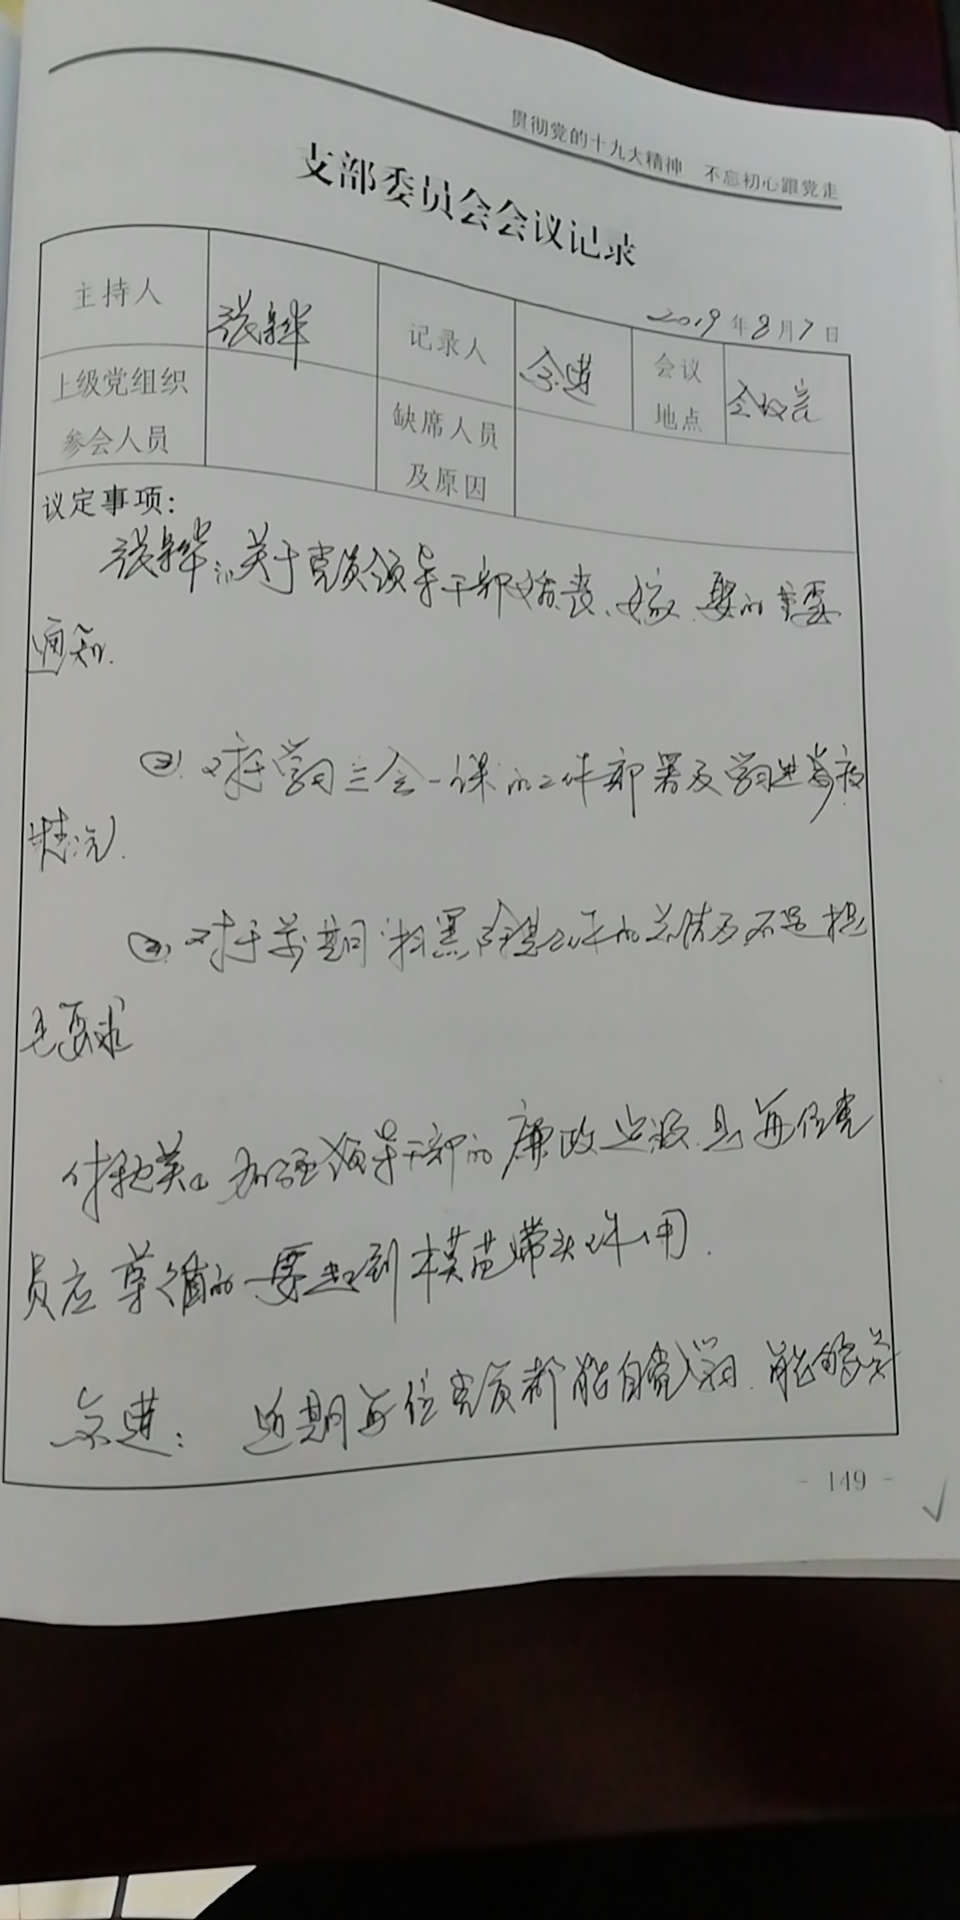 贯彻党的十九大精神 不忘初心跟党走
支部委员会会议记录
2019年8月7日
主持人 张 记录人 进 会议地点 会议室
上级党组织参会人员 缺席人员及原因
议定事项：
张 关于党员领导干部 丧、嫁、娶的
通知.
②. 对于学习三会一课的工作部署及学习进
情况.
③. 对于前期扫黑除恶工作的总结及不足提
出要求
付 加强领导干部的廉政 是每位党
员应遵循的 要起到模范带头作用.
进： 近期每位党员都能自觉学习. 能够
- 149 -